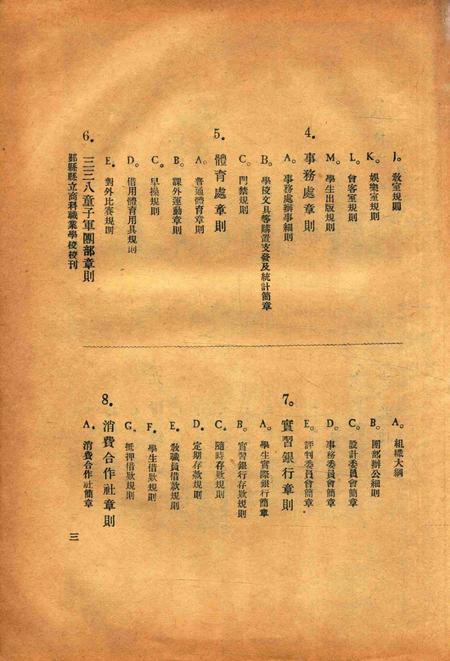 J。教室規則
K。娛樂室規則
L。會客室規則
M。學生出版規則
4。事務處章則
A。事務處辦事細則
B。學校文具等購置支發及統計簡章
C。門禁規則
5。體育處章則
A。普通體育章則
B。課外運動章則
C。早操規則
D。借用體育用具規則
E。對外比賽規則
6。三三八童子軍團部章則
鄞縣縣立商科職業學校校刊
A。組織大綱
B。團部辦公細則
C。設計委員會簡章
D。事務委員會簡章
E。評判委員會簡章
7。實習銀行章則
A。學生實際銀行簡章
B。實習銀行存款規則
C。隨時存款規則
D。定期存款規則
E。教職員借款規則
F。學生借款規則
G。抵押借款規則
8。消費合作社章則
A。消費合作社簡章
三